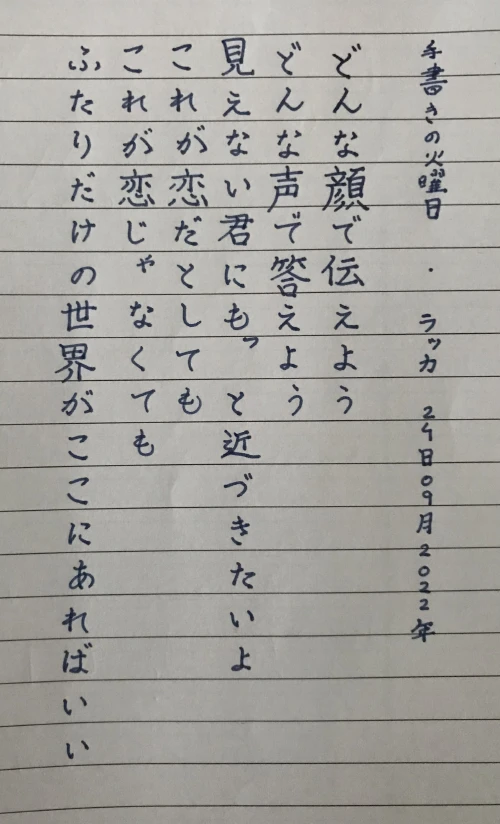 手書きの火曜日 · ラッカ 24日09月2022年
どんな顔で伝えよう
どんな声で答えよう
見えない君にもっと近づきたいよ
これが恋だとしても
これが恋じゃなくても
ふたりだけの世界がここにあればいい